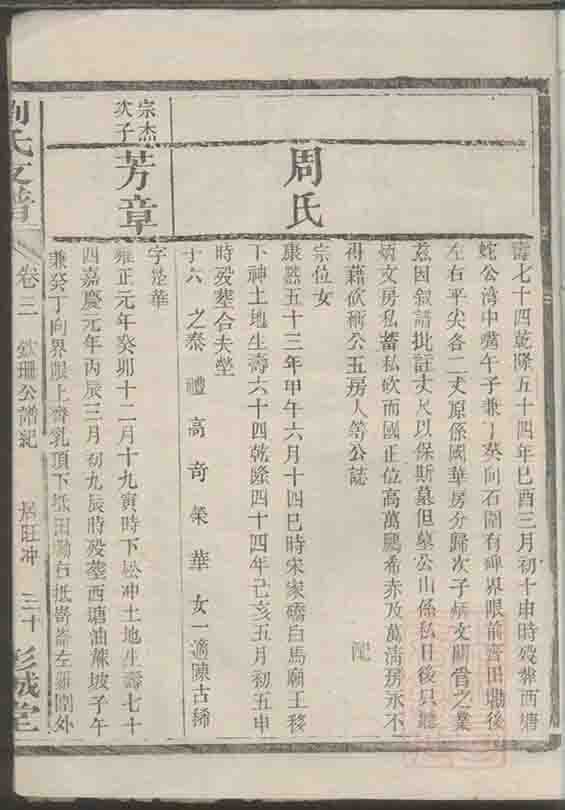 壽七十四乾隆五十四年己酉三月初十申時殁葬西塘
蛇公湾中嘴午子兼丁癸向石圍有碑界眼前齊田墈後
左右平尖各二丈原係國華房分歸次子炳文關管之業
兹因叙譜批註丈尺以保斯墓但墓公山係私日後只
炳文房私蓄私砍而國正位高萬鵬希赤及萬清房永不
得藉砍稱公五房人等公誌
配
周氏
宗位女
康熙五十三年甲午六月十四巳時宋家礄白馬廟王移
下神土地生壽六十四乾隆四十四年己亥五月初五申
時殁葬合夫塋
子六 之泰 禮 高 奇 榮 華 女一適陳古稀
宗杰
次子
芳章
字楚華
雍正元年癸卯十二月十九寅時下松冲土地生壽七十
四嘉慶元年丙辰三月初九辰時殁葬西塘油蔴坡子午
兼癸丁向界眼上齊乳頂下抵田墈右抵嵛左新圍外
劉氏支譜
卷三
欽珊公譜紀
居旺冲
三十
彭城堂